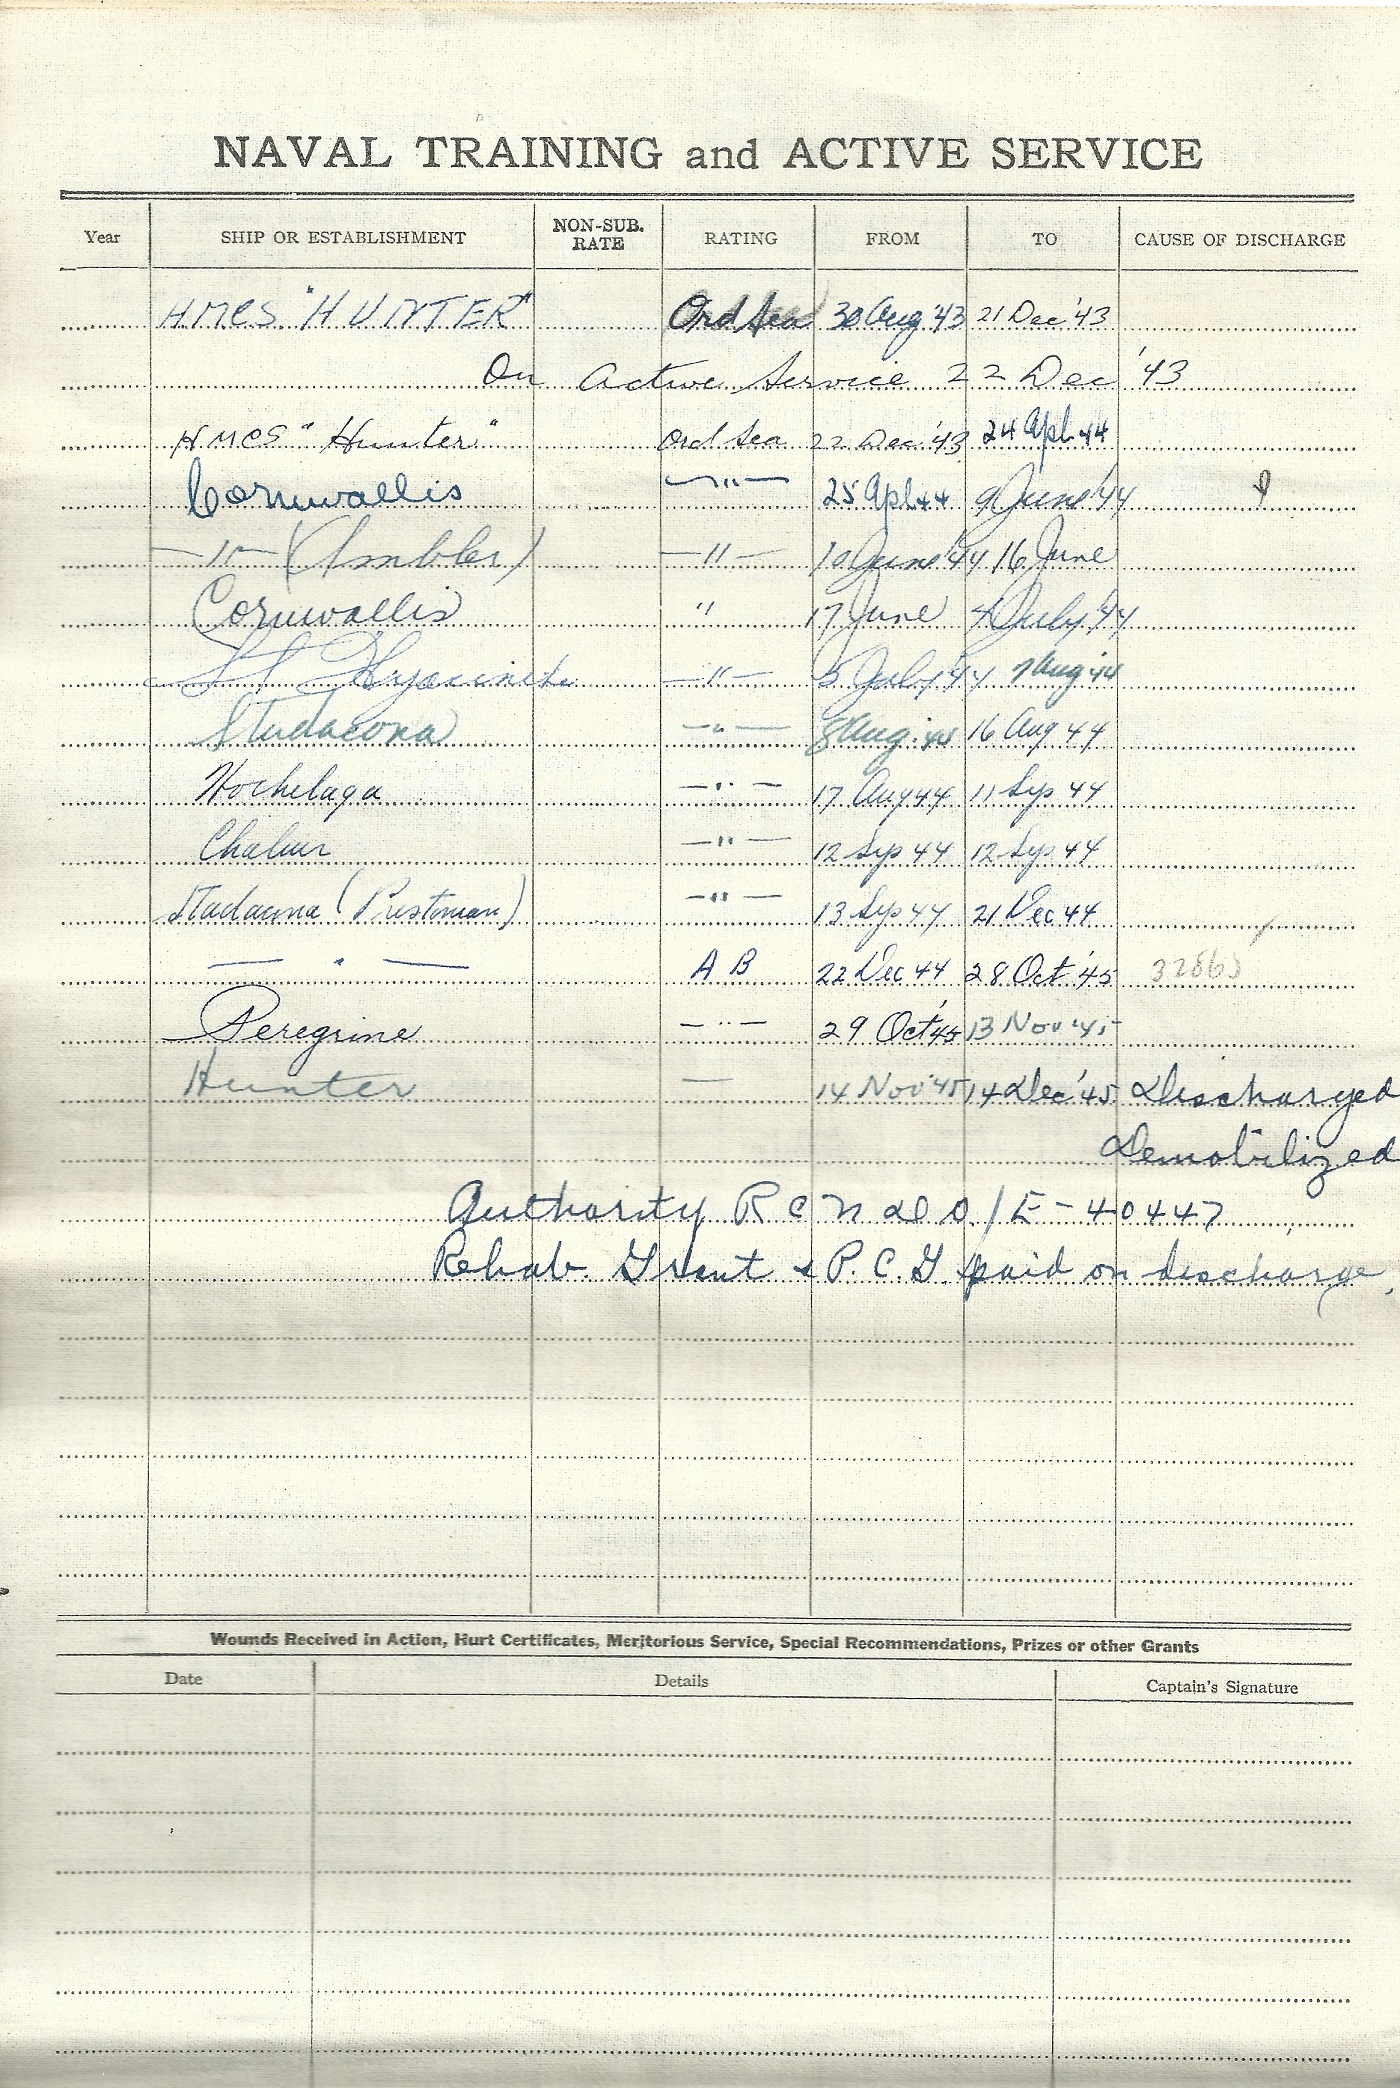 NAVAL TRAINING and ACTIVE SERVICE
Year SHIP OR ESTABLISHMENT NON-SUB. RATE RATING FROM TO CAUSE OF DISCHARGE
HMCS "HUNTER" Ord Sea 30 Aug '43 21 Dec '43
On Active Service 22 Dec '43
HMCS "Hunter" Ord Sea 22 Dec '43 24 Apl 44
Cornwallis —"— 25 Apl 44 9 June '44
—"— (Ambler) —"— 10 June '44 16 June
Cornwallis " 17 June 4 July '44
St Hyacinthe —"— 5 July '44 7 Aug '44
Stadacona —"— 8 Aug. '44 16 Aug 44
Hochelaga —"— 17 Aug 44 11 Sep 44
Chaleur —"— 12 Sep 44 12 Sep 44
Stadacona (Prestonian) —"— 13 Sep 44 21 Dec 44
—"— AB 22 Dec 44 28 Oct '45 32865
Peregrine —"— 29 Oct '45 13 Nov '45
Hunter — 14 Nov '45 14 Dec '45 Discharged
Demobilized
Authority R C N D O / E-40447
Rehab. Grant & P.C.G. paid on discharge.
Wounds Received in Action, Hurt Certificates, Meritorious Service, Special Recommendations, Prizes or other Grants
Date Details Captain's Signature